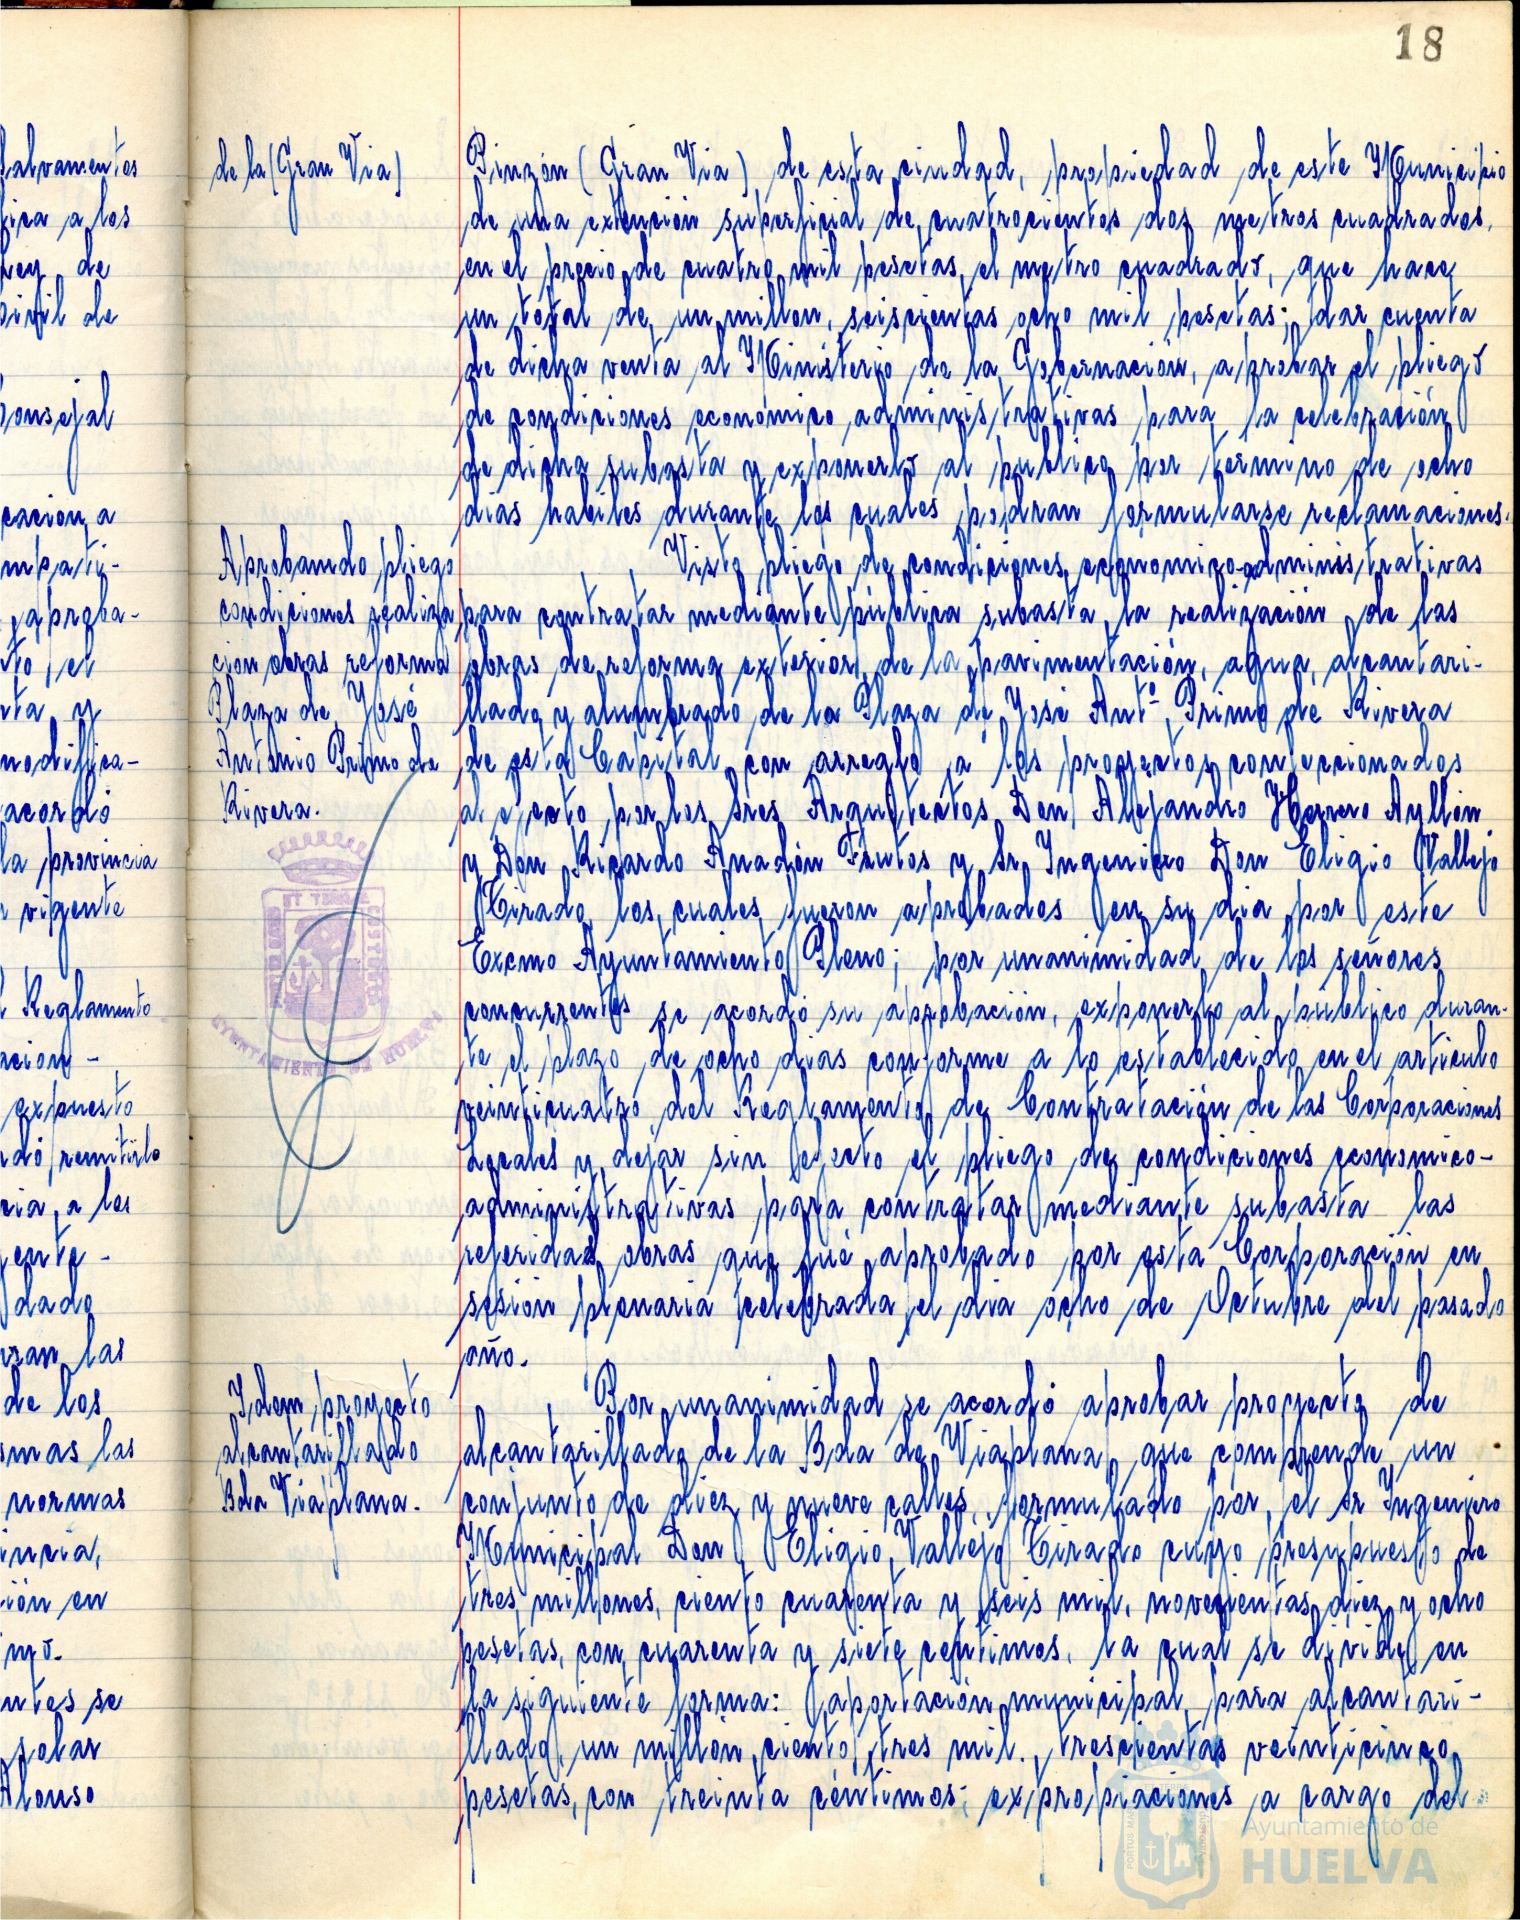 18
de la (Gran Via)
Pinzón (Gran Via), de esta ciudad, propiedad de este Municipio
de una extención superficial de cuatrocientos dos metros cuadrados,
en el precio de cuatro mil pesetas el metro cuadrado, que hace
un total de un millon, seiscientas ocho mil pesetas; dar cuenta
de dicha venta al Ministerio de la Gobernación, aprobar el pliego
de condiciones económico administrativas para la celebración
de dicha subasta y exponerlo al publico por termino de ocho
dias habiles durante los cuales podran formularse reclamaciones.
Aprobando pliego
condiciones realiza
ción obras reforma
Plaza de José
Antonio Primo de
Rivera.
Visto pliego de condiciones economico-administrativas
para contratar mediante pública subasta, la realización de las
obras de reforma exterior, de la pavimentación, agua, alcantari-
llado y alumbrado de la Plaza de José Antº Primo de Rivera
de esta Capital con arreglo a los proyectos confeccionados
al efecto por los Sres Arquitectos Don Alejandro Herrero Ayllón
y Don Ricardo Anadón Frutos y Sr Ingeniero Don Eligio Vallejo
Tirado, los cuales fueron aprobados en su dia por este
Excmo Ayuntamiento Pleno; por unanimidad de los señores
concurrentes se acordó su aprobación, exponerlo al público duran-
te el plazo de ocho dias conforme a lo establecido en el articulo
veinticuatro del Reglamento de Contratación de las Corporaciones
Locales y dejar sin efecto el pliego de condiciones economico-
administrativas para contratar mediante subasta las
referidas obras que fué aprobado por esta Corporación en
sesión plenaria celebrada el dia ocho de Octubre del pasado
año.
Idem proyecto
alcantarillado
Bda Viaplana.
Por unanimidad se acordó aprobar proyecto de
alcantarillado de la Bda de Viaplana, que comprende un
conjunto de diez y nueve calles, formulado por el Sr Ingeniero
Municipal Don Eligio Vallejo Tirado cuyo presupuesto de
tres millones, ciento cuarenta y seis mil, novecientas diez y ocho
pesetas, con cuarenta y siete centimos, la cual se divide en
la siguiente forma: aportación municipal para alcantari-
llado, un millón, ciento tres mil, trescientas veinticinco
pesetas, con treinta céntimos; expropiaciones a cargo del
AYUNTAMIENTO DE HUELVA
Ayuntamiento de
HUELVA
salvamentos
fica a los
Ley de
Civil de
Consejal
cación a
aproba-
to, el
nta y
modifica-
acordó
la provincia
vigente
Reglamento
ación-
expuesto
remitirlo
cia, a los
dado
las
de los
mas las
normas
incia,
ión en
ntes se
solar
Alonso